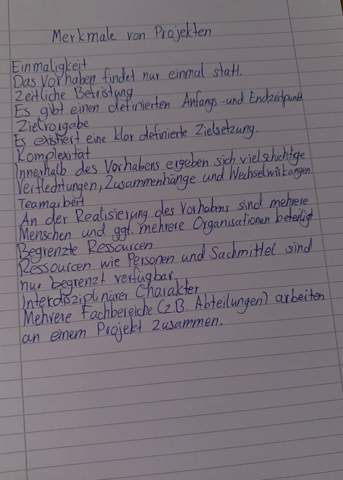 Merkmale von Projekten
Einmaligkeit
Das Vorhaben findet nur einmal statt.
Zeitliche Befristung
Es gibt einen definierten Anfangs- und Endzeitpunkt
Zielvorgabe
Es existiert eine klar definierte Zielsetzung.
Komplexität
Innerhalb des Vorhabens ergeben sich vielschichtige
Verflechtungen, Zusammenhänge und Wechselwirkungen.
Teamarbeit
An der Realisierung des Vorhabens sind mehrere
Menschen und ggf. mehrere Organisationen beteiligt
Begrenzte Ressourcen
Ressourcen wie Personen und Sachmittel sind
nur begrenzt verfügbar
Interdisziplinärer Charakter
Mehrere Fachbereiche (z.B. Abteilungen) arbeiten
an einem Projekt zusammen.